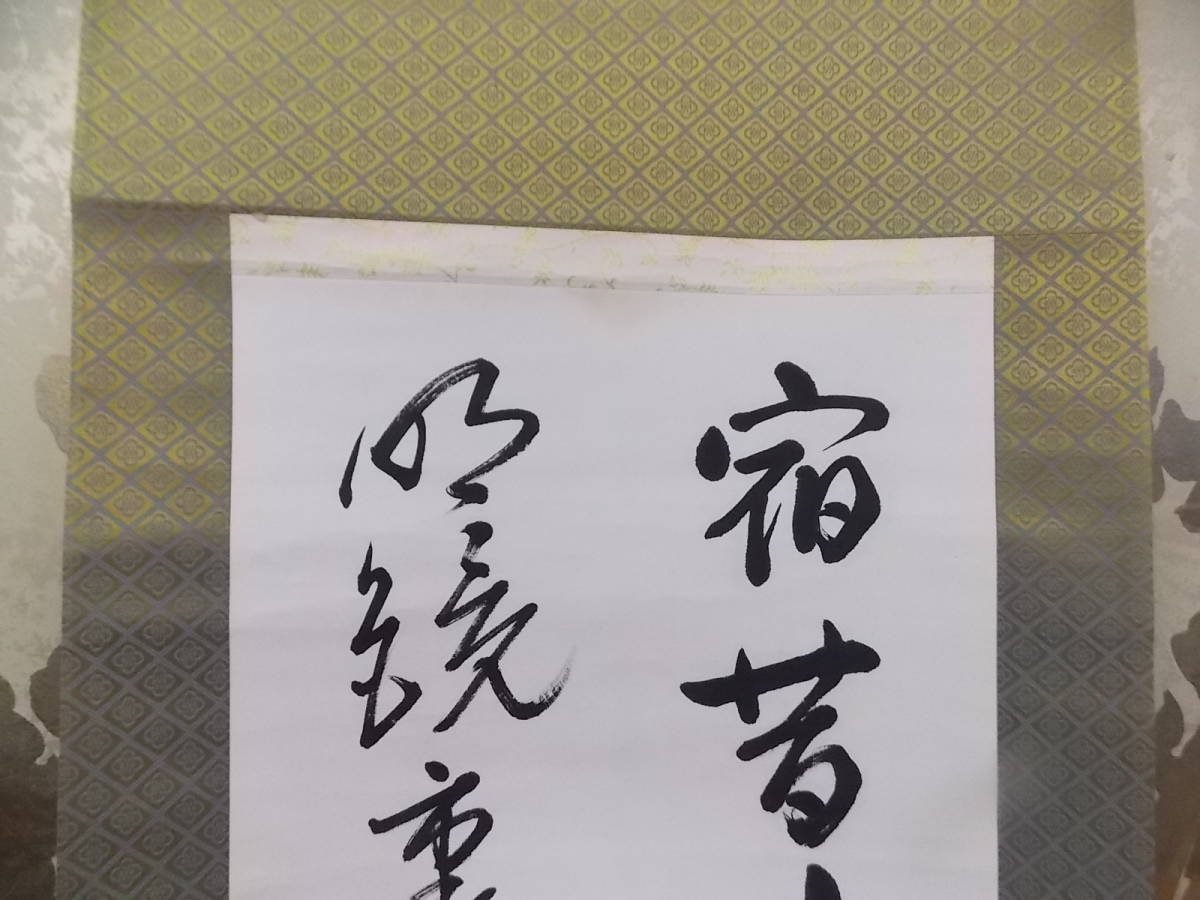 宿昔
明鏡裏